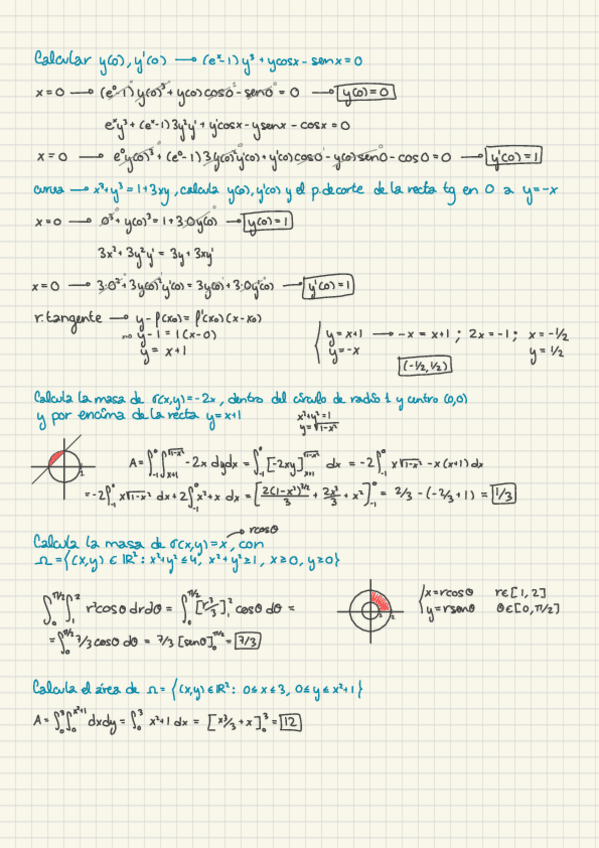 Calcular y(0), y'(0) → (eˣ-1) y³ + ycosx - senx = 0
x=0 → (e⁰-1) y(0)³ + y(0) cos0 - sen0 = 0 → y(0)=0
eˣy³ + (eˣ-1) 3y²y' + y'cosx - ysenx - cosx = 0
x=0 → e⁰y(0)³ + (e⁰-1) 3y(0)²y'(0) + y'(0) cos0 - y(0) sen0 - cos0 = 0 → y'(0)=1
curva → x³+y³ = 1+3xy, calcula y(0), y'(0) y el p. de corte de la recta tg en 0 a y=-x
x=0 → 0³ + y(0)³ = 1+3·0y(0) → y(0)=1
3x² + 3y²y' = 3y + 3xy'
x=0 → 3·0² + 3y(0)²y'(0) = 3y(0) + 3·0y'(0) → y'(0)=1
r.tangente → y - f(x₀) = f'(x₀)(x-x₀)
→ y-1 = 1(x-0)
y = x+1
{ y=x+1 → -x = x+1 ; 2x=-1 ; x=-1/2
y=-x y=1/2
(-1/2, 1/2)
Calcula la masa de σ(x,y)=-2x, dentro del círculo de radio 1 y centro (0,0)
y por encima de la recta y=x+1
x²+y²=1
y=√1-x²
1
A = ∫₋₁⁰ ∫ₓ₊₁^√1-x² -2x dydx = ∫₋₁⁰ [-2xy]ₓ₊₁^√1-x² dx = -2∫₋₁⁰ x√1-x² - x(x+1) dx
= -2∫₋₁⁰ x√1-x² dx + 2∫₋₁⁰ x²+x dx = [2(1-x²)^3/2 / 3 + 2x³/3 + x²]₋₁⁰ = 2/3 - (-2/3+1) = 1/3
→ rcosθ
Calcula la masa de σ(x,y)=x, con
Ω={(x,y) ∈ ℝ² : x²+y² ≤ 4, x²+y² ≥ 1, x≥0, y≥0}
∫₀^π/2 ∫₁² r²cosθ drdθ = ∫₀^π/2 [r³/3]₁² cosθ dθ =
= ∫₀^π/2 7/3 cosθ dθ = 7/3 [senθ]₀^π/2 = 7/3
1 2
{ x=rcosθ r∈[1,2]
y=rsenθ θ∈[0,π/2]
Calcula el área de Ω={(x,y) ∈ ℝ² : 0≤x≤3, 0≤y≤x²+1}
A = ∫₀³ ∫₀^x²+1 dxdy = ∫₀³ x²+1 dx = [x³/3 + x]₀³ = 12